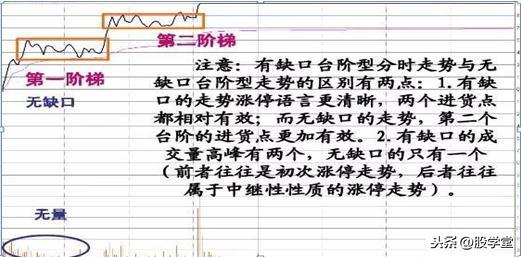 第二阶梯
第一阶梯
无缺口
注意：有缺口台阶型分时走势与无
缺口台阶型走势的区别有两点：1.有缺
口的走势涨停语言更清晰，两个进货点
都相对有效；而无缺口的走势，第二个
台阶的进货点更加有效。2.有缺口的成
交量高峰有两个，无缺口的只有一个
（前者往往是初次涨停走势，后者往往
属于中继性性质的涨停走势）。
无量
头条@股学堂